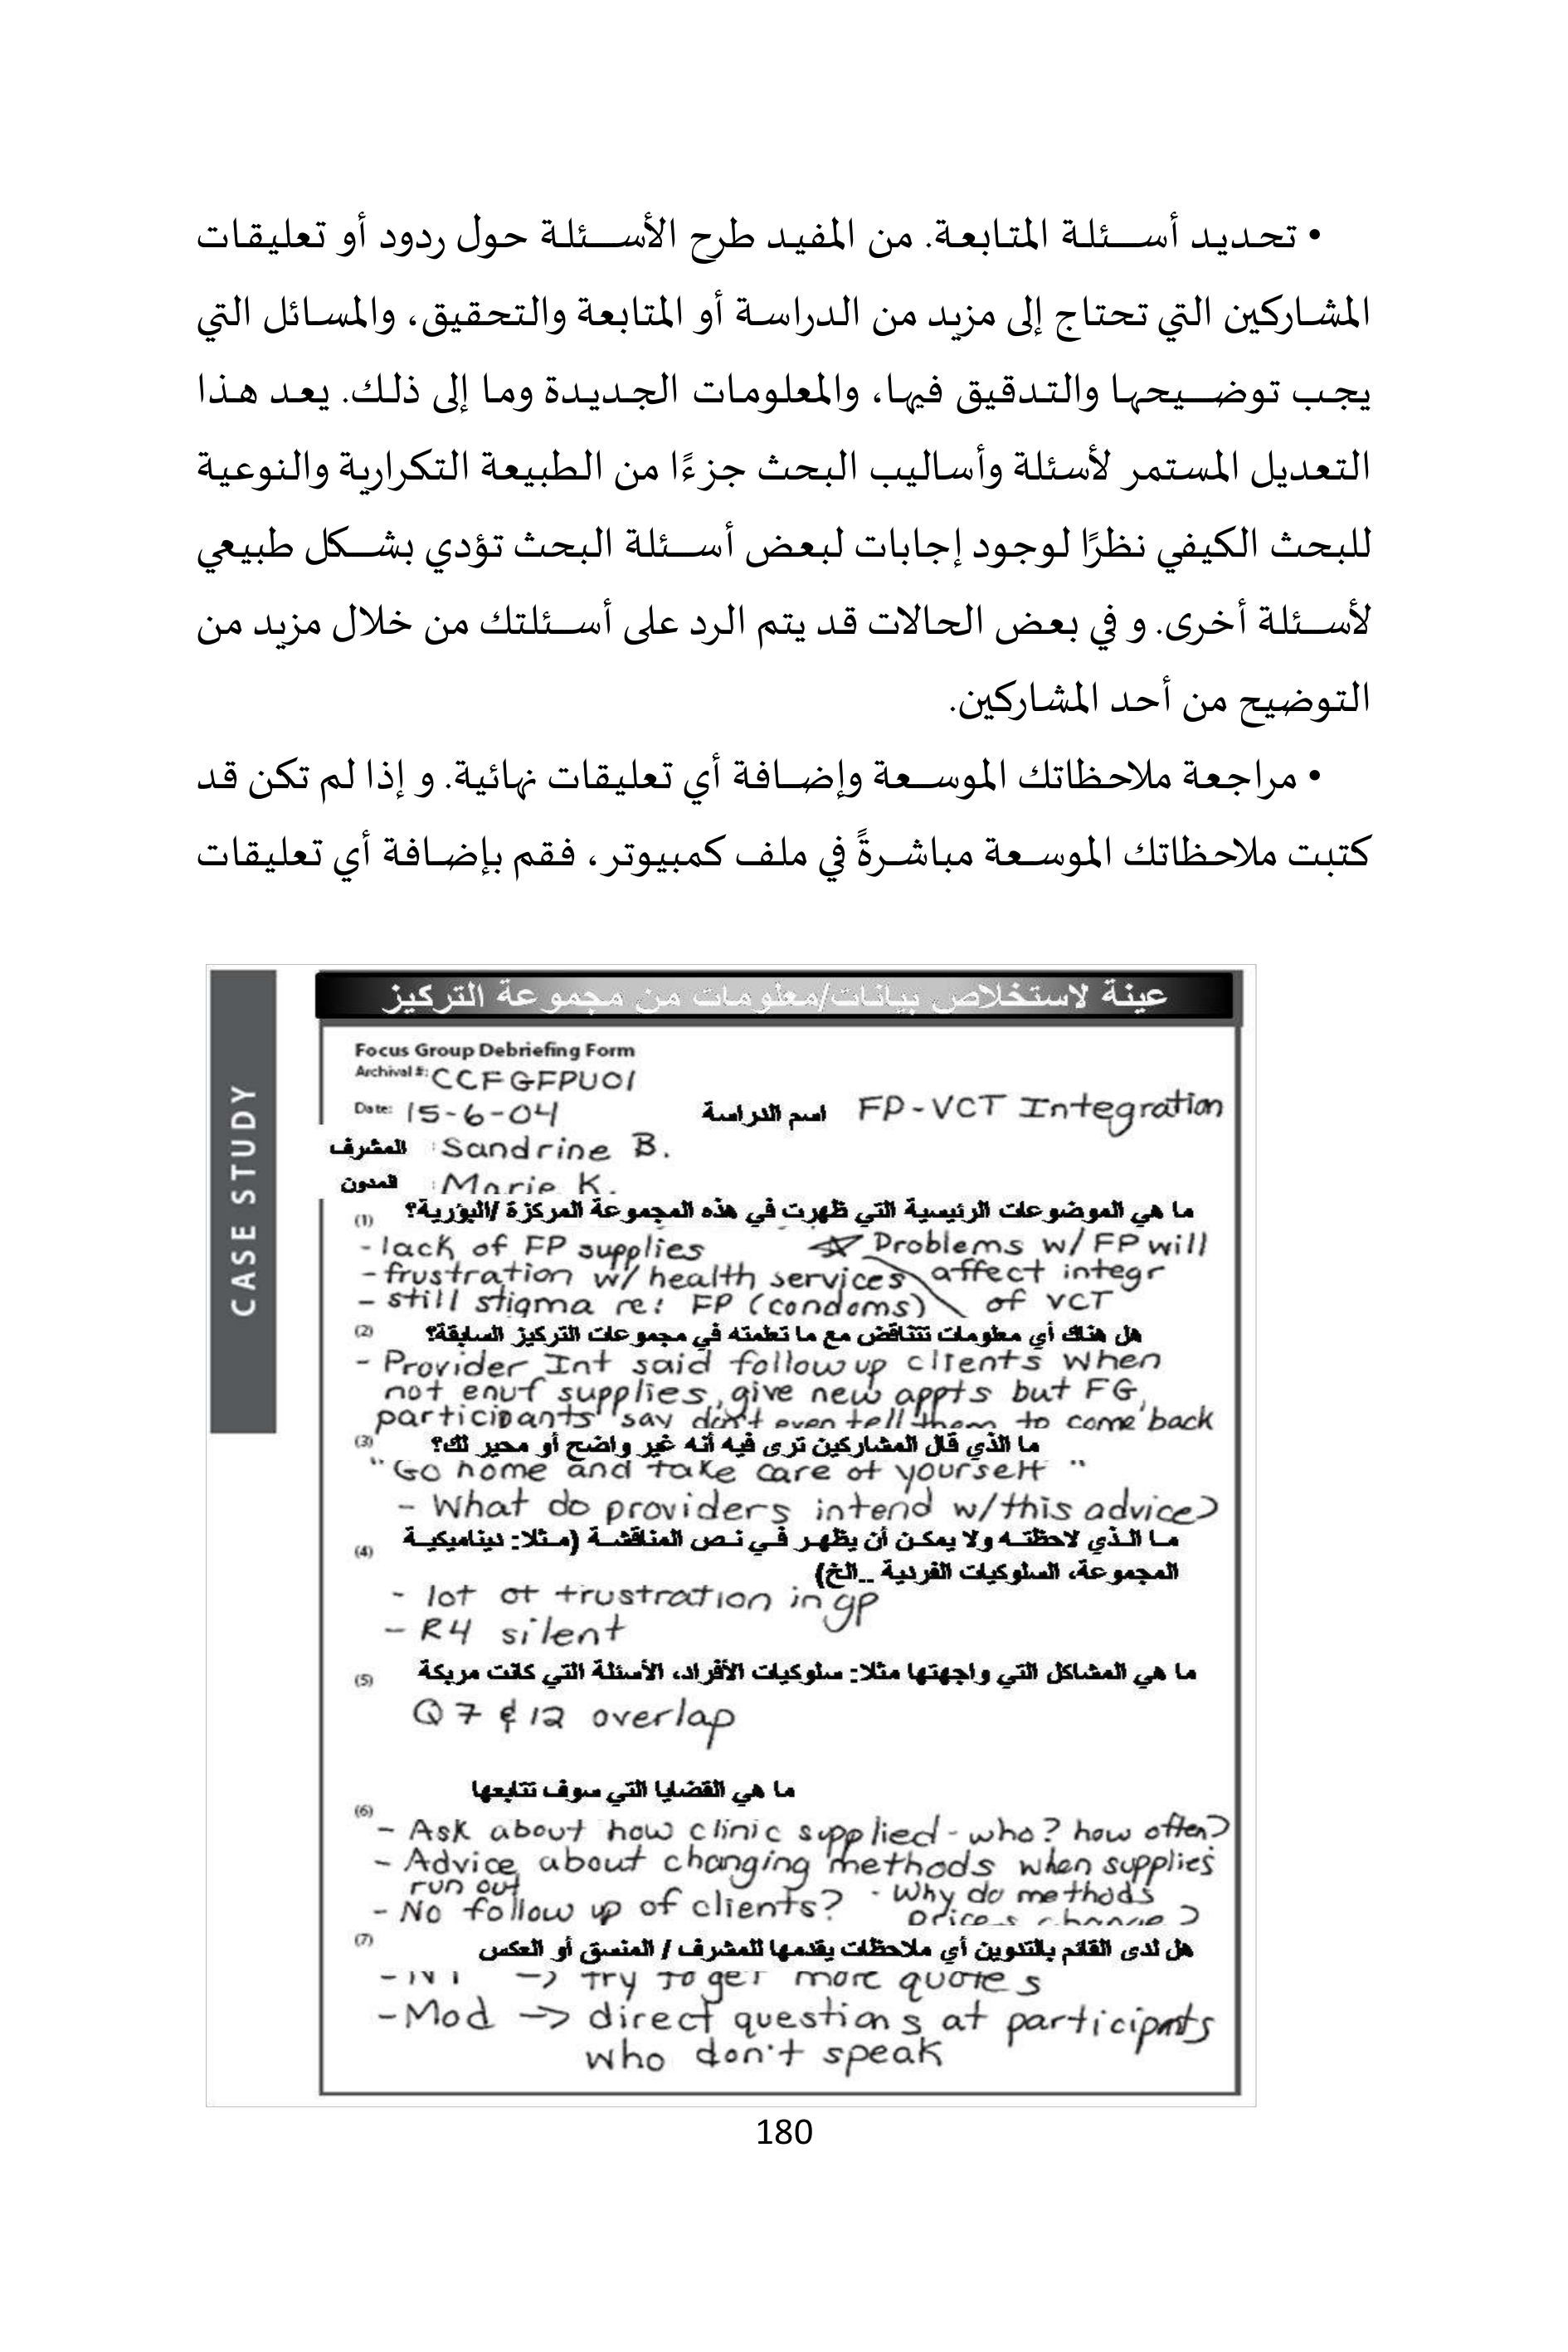 • تحديد أسئلة المتابعة. من المفيد طرح الأسئلة حول ردود أو تعليقات
المشاركين التي تحتاج إلى مزيد من الدراسة أو المتابعة والتحقيق، والمسائل التي
يجب توضيحها والتدقيق فيها، والمعلومات الجديدة وما إلى ذلك. يعد هذا
التعديل المستمر لأسئلة وأساليب البحث جزءًا من الطبيعة التكرارية والنوعية
للبحث الكيفي نظرًا لوجود إجابات لبعض أسئلة البحث تؤدي بشكل طبيعي
لأسئلة أخرى. و في بعض الحالات قد يتم الرد على أسئلتك من خلال مزيد من
التوضيح من أحد المشاركين.
• مراجعة ملاحظاتك الموسعة وإضافة أي تعليقات نهائية. و إذا لم تكن قد
كتبت ملاحظاتك الموسعة مباشرةً في ملف كمبيوتر، فقم بإضافة أي تعليقات
CASE STUDY
عينة لاستخلاص بيانات/معلومات من مجموعة التركيز
Focus Group Debriefing Form
Archival #: CCFGFPU01
Date: 15-6-04 اسم الدراسة FP-VCT Integration
المشرف : Sandrine B.
المدون : Marie K.
(1) ما هي الموضوعات الرئيسية التي ظهرت في هذه المجموعة المركزة /البؤرية؟
- lack of FP supplies ☆ Problems w/ FP will
- frustration w/ health services affect integr
- still stigma re: FP (condoms) of VCT
(2) هل هناك أي معلومات تتناقض مع ما تعلمته في مجموعات التركيز السابقة؟
- Provider Int said follow up clients when
not enuf supplies, give new appts but FG
participants say don't even tell them to come back
(3) ما الذي قال المشاركين ترى فيه أنه غير واضح أو محير لك؟
"Go home and take care of yourself"
- What do providers intend w/this advice?
(4) ما الذي لاحظته ولا يمكن أن يظهر في نص المناقشة (مثلا: ديناميكية
المجموعة، السلوكيات الفردية ..الخ)
- lot of frustration in gp
- R4 silent
(5) ما هي المشاكل التي واجهتها مثلا: سلوكيات الأفراد، الأسئلة التي كانت مربكة
Q 7 & 12 overlap
ما هي القضايا التي سوف تتابعها
(6)
- Ask about how clinic supplied - who? how often?
- Advice about changing methods when supplies
run out
- No follow up of clients? - Why do methods
prices change?
(7) هل لدى القائم بالتدوين أي ملاحظات يقدمها للمشرف / المنسق أو العكس
- NT -> try to get more quotes
- Mod -> direct questions at participnts
who don't speak
180